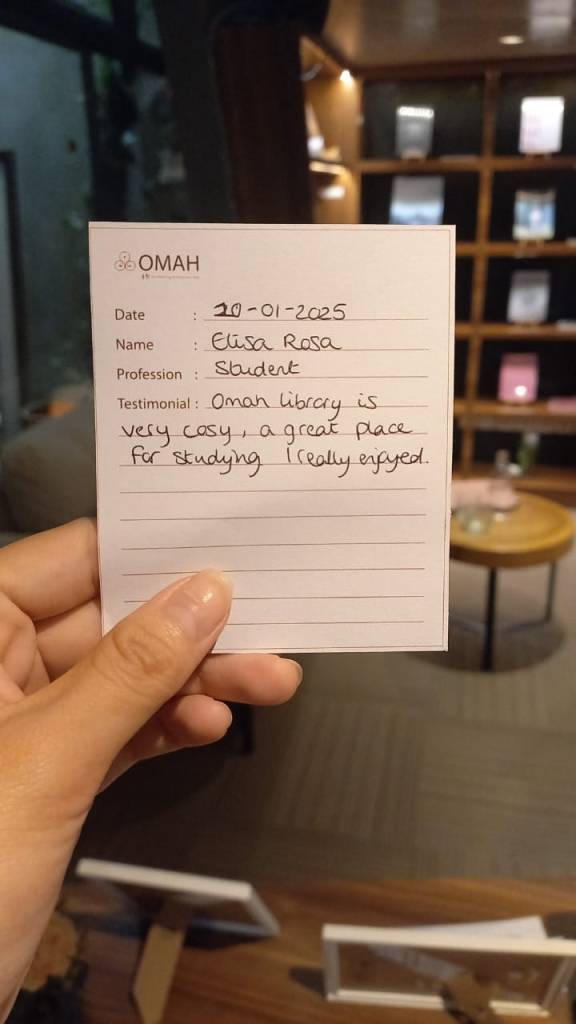 OMAH
Date : 20-01-2025
Name : Elisa Rosa
Profession : Student
Testimonial : Omah library is
very cosy, a great place
for studying I really enjoyed.